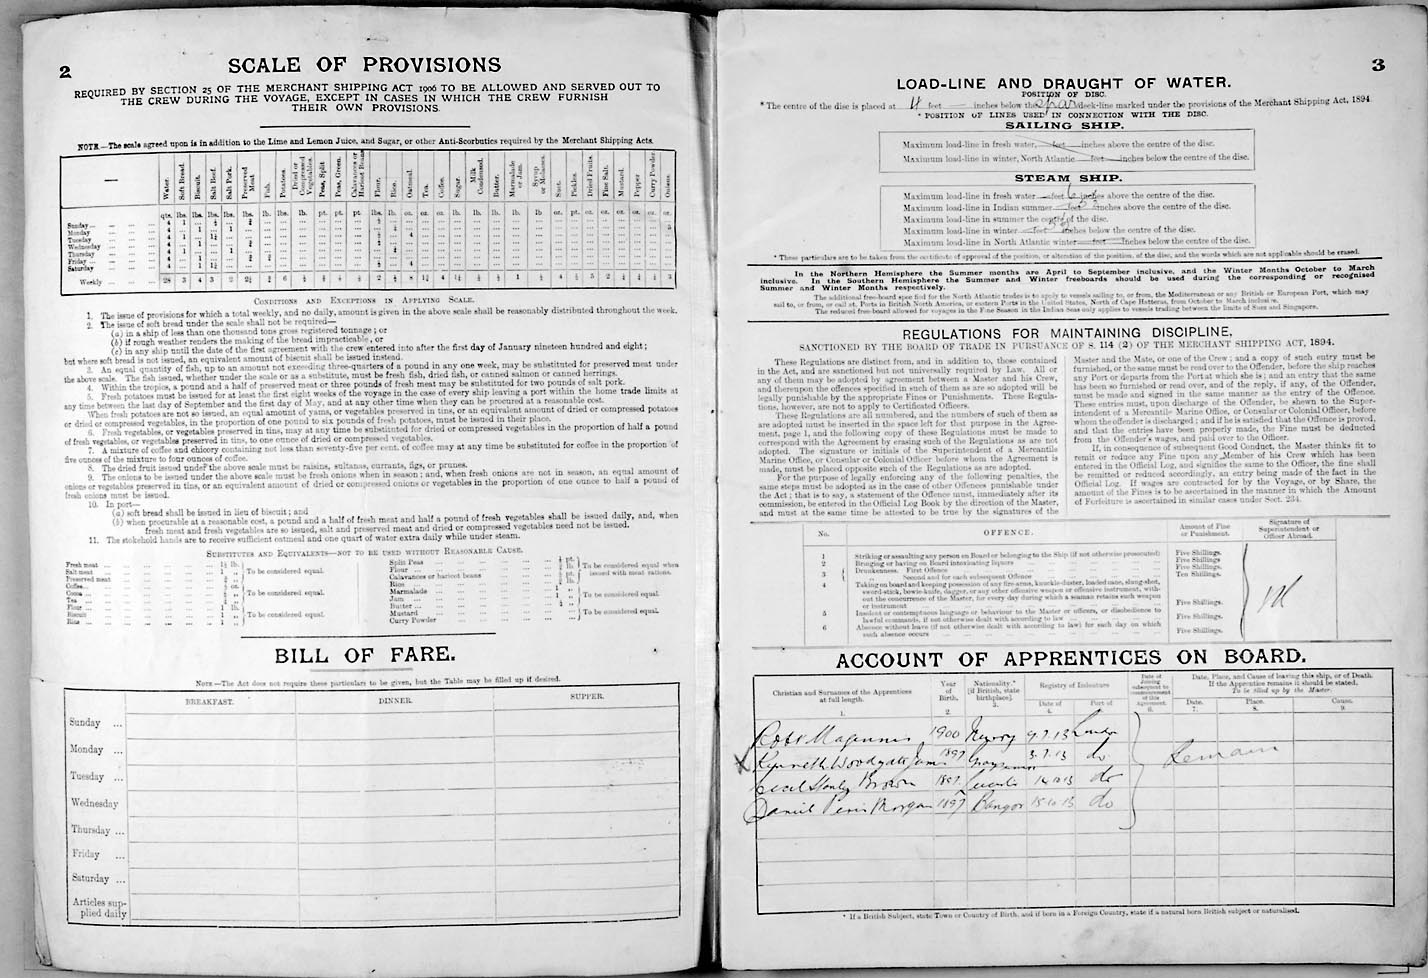 2
SCALE OF PROVISIONS
REQUIRED BY SECTION 25 OF THE MERCHANT SHIPPING ACT 1906 TO BE ALLOWED AND SERVED OUT TO
THE CREW DURING THE VOYAGE, EXCEPT IN CASES IN WHICH THE CREW FURNISH
THEIR OWN PROVISIONS.
NOTE.—The scale agreed upon is in addition to the Lime and Lemon Juice, and Sugar, or other Anti-Scorbutics required by the Merchant Shipping Acts.
Water. Soft Bread. Biscuit. Salt Beef. Salt Pork. Preserved Meat. Fish. Potatoes. Dried or Compressed Vegetables. Peas, Split Peas, Green. Calavances or Haricot Beans Flour. Rice. Oatmeal. Tea. Coffee. Sugar. Milk Condensed. Butter. Marmalade or Jam. Syrup or Molasses. Suet. Pickles. Dried Fruits. Fine Salt. Mustard. Pepper Curry Powder. Onions.
qts. lbs. lbs. lbs. lbs. lbs. lb. lbs. lb. pt. pt. pt. lbs. lb. oz. oz. oz. lb. lb. lb. lb. lb oz. pt. oz. oz. oz. oz. oz. oz.
Sunday ...
Monday ...
Tuesday ...
Wednesday ...
Thursday ...
Friday ...
Saturday ...
Weekly ...
CONDITIONS AND EXCEPTIONS IN APPLYING SCALE.
1. The issue of provisions for which a total weekly, and no daily, amount is given in the above scale shall be reasonably distributed throughout the week.
2. The issue of soft bread under the scale shall not be required—
(a) in a ship of less than one thousand tons gross registered tonnage; or
(b) if rough weather renders the making of the bread impracticable, or
(c) in any ship until the date of the first agreement with the crew entered into after the first day of January nineteen hundred and eight;
but where soft bread is not issued, an equivalent amount of biscuit shall be issued instead.
3. An equal quantity of fish, up to an amount not exceeding three-quarters of a pound in any one week, may be substituted for preserved meat under
the above scale. The fish issued, whether under the scale or as a substitute, must be fresh fish, dried fish, or canned salmon or canned herrings.
4. Within the tropics, a pound and a half of preserved meat or three pounds of fresh meat may be substituted for two pounds of salt pork.
5. Fresh potatoes must be issued for at least the first eight weeks of the voyage in the case of every ship leaving a port within the home trade limits at
any time between the last day of September and the first day of May, and at any other time when they can be procured at a reasonable cost.
When fresh potatoes are not so issued, an equal amount of yams, or vegetables preserved in tins, or an equivalent amount of dried or compressed potatoes
or dried or compressed vegetables, in the proportion of one pound to six pounds of fresh potatoes, must be issued in their place.
6. Fresh vegetables, or vegetables preserved in tins, may at any time be substituted for dried or compressed vegetables in the proportion of half a pound
of fresh vegetables, or vegetables preserved in tins, to one ounce of dried or compressed vegetables.
7. A mixture of coffee and chicory containing not less than seventy-five per cent. of coffee may at any time be substituted for coffee in the proportion of
five ounces of the mixture to four ounces of coffee.
8. The dried fruit issued under the above scale must be raisins, sultanas, currants, figs, or prunes.
9. The onions to be issued under the above scale must be fresh onions when in season; and, when fresh onions are not in season, an equal amount of
onions or vegetables preserved in tins, or an equivalent amount of dried or compressed onions or vegetables in the proportion of one ounce to half a pound of
fresh onions must be issued.
10. In port—
(a) soft bread shall be issued in lieu of biscuit; and
(b) when procurable at a reasonable cost, a pound and a half of fresh meat and half a pound of fresh vegetables shall be issued daily, and, when
fresh meat and fresh vegetables are so issued, salt and preserved meat and dried or compressed vegetables need not be issued.
11. The stokehold hands are to receive sufficient oatmeal and one quart of water extra daily while under steam.
SUBSTITUTES AND EQUIVALENTS—NOT TO BE USED WITHOUT REASONABLE CAUSE.
Fresh meat ...
Salt meat ... To be considered equal.
Preserved meat
Coffee...
Cocoa ... To be considered equal.
Tea ...
Flour ... 1 lb.
Biscuit ... 1 „ To be considered equal.
Rice ... 1 „
Split Peas ...
Flour ... To be considered equal when
Calavances or haricot beans issued with meat rations.
Rice ...
Marmalade ...
Jam ... To be considered equal.
Butter ...
Mustard ... To be considered equal.
Curry Powder ...
BILL OF FARE.
NOTE—The Act does not require these particulars to be given, but the Table may be filled up if desired.
BREAKFAST. DINNER. SUPPER.
Sunday ...
Monday ...
Tuesday ...
Wednesday
Thursday ...
Friday ...
Saturday ...
Articles sup-
plied daily
3
LOAD-LINE AND DRAUGHT OF WATER.
POSITION OF DISC.
*The centre of the disc is placed at 4 feet — inches below the spar deck-line marked under the provisions of the Merchant Shipping Act, 1894
* POSITION OF LINES USED IN CONNECTION WITH THE DISC.
SAILING SHIP.
Maximum load-line in fresh water, feet inches above the centre of the disc.
Maximum load-line in winter, North Atlantic feet inches below the centre of the disc.
STEAM SHIP.
Maximum load-line in fresh water feet inches above the centre of the disc.
Maximum load-line in Indian summer feet inches above the centre of the disc.
Maximum load-line in summer the centre of the disc.
Maximum load-line in winter feet inches below the centre of the disc.
Maximum load-line in North Atlantic winter feet inches below the centre of the disc.
* These particulars are to be taken from the certificate of approval of the position, or alteration of the position, of the disc, and the words which are not applicable should be erased.
In the Northern Hemisphere the Summer months are April to September inclusive, and the Winter Months October to March
inclusive. In the Southern Hemisphere the Summer and Winter freeboards should be used during the corresponding or recognised
Summer and Winter Months respectively.
The additional free-board specified for the North Atlantic trades is to apply to vessels sailing to, or from, the Mediterranean or any British or European Port, which may
sail to, or from, or call at, Ports in British North America, or eastern Ports in the United States, North of Cape Hatteras, from October to March inclusive.
The reduced free-board allowed for voyages in the Fine Season in the Indian Seas only applies to vessels trading between the limits of Suez and Singapore.
REGULATIONS FOR MAINTAINING DISCIPLINE,
SANCTIONED BY THE BOARD OF TRADE IN PURSUANCE OF S. 114 (2) OF THE MERCHANT SHIPPING ACT, 1894.
These Regulations are distinct from, and in addition to, those contained
in the Act, and are sanctioned but not universally required by Law. All or
any of them may be adopted by agreement between a Master and his Crew,
and thereupon the offences specified in such of them as are so adopted will be
legally punishable by the appropriate Fines or Punishments. These Regula-
tions, however, are not to apply to Certificated Officers.
These Regulations are all numbered, and the numbers of such of them as
are adopted must be inserted in the space left for that purpose in the Agree-
ment, page 1, and the following copy of these Regulations must be made to
correspond with the Agreement by erasing such of the Regulations as are not
adopted. The signature or initials of the Superintendent of a Mercantile
Marine Office, or Consular Officer before whom the Agreement is
made, must be placed opposite such of the Regulations as are adopted.
For the purpose of legally enforcing any of the following penalties, the
same steps must be adopted as in the case of other Offences punishable under
the Act; that is to say, a statement of the Offence must, immediately after its
commission, be entered in the Official Log Book by the direction of the Master,
and must at the same time be attested to be true by the signatures of the
Master and the Mate, or one of the Crew; and a copy of such entry must be
furnished, or the same must be read over to the Offender, before the ship reaches
any Port or departs from the Port at which she is; and an entry that the same
has been so furnished or read over, and of the reply, if any, of the Offender,
must be made and signed in the same manner as the entry of the Offence.
These entries must, upon discharge of the Offender, be shewn to the Super-
intendent of a Mercantile Marine Office, or Consular or Colonial Officer, before
whom the offender is discharged; and if he is satisfied that the Offence is proved,
and that the entries have been properly made, the Fine must be deducted
from the Offender's wages, and paid over to the Officer.
If, in consequence of subsequent Good Conduct, the Master thinks fit to
remit or reduce any Fine upon any Member of his Crew which has been
entered in the Official Log, and signifies the same to the Officer, the fine shall
be remitted or reduced accordingly, an entry being made of the fact in the
Official Log. If wages are contracted for by the Voyage, or by Share, the
amount of the Fines is to be ascertained in the manner in which the Amount
of Forfeiture is ascertained in similar cases under Sect. 234.
No. OFFENCE. Amount of Fine or Punishment. Signature of Superintendent or Officer Abroad.
1 Striking or assaulting any person on Board or belonging to the Ship (if not otherwise prosecuted) Five Shillings.
2 Bringing or having on Board intoxicating liquors Five Shillings.
3 Drunkenness. First Offence Five Shillings.
„ Second and for each subsequent Offence Ten Shillings.
4 Taking on board and keeping possession of any fire-arms, knuckle-duster, loaded cane, slung-shot,
sword-stick, bowie-knife, dagger, or any other offensive weapon or offensive instrument, with-
out the concurrence of the Master, for every day during which a seaman retains such weapon
or instrument Five Shillings.
5 Insolent or contemptuous language or behaviour to the Master or officers, or disobedience to
lawful commands, if not otherwise dealt with according to law Five Shillings.
6 Absence without leave (if not otherwise dealt with according to law) for each day on which
such absence occurs Five Shillings.
ACCOUNT OF APPRENTICES ON BOARD.
Christian and Surnames of the Apprentices at full length. Year of Birth. Nationality.* [if British, state birthplace]. Registry of Indenture Date of Joining subsequent to commencement of this Agreement. Date, Place, and Cause of leaving this ship, or of Death. If the Apprentice remains it should be stated. To be filled up by the Master.
Date of Port of Date. Place. Cause.
1. 2. 3. 4. 5. 6. 7. 8. 9.
Robt Magennis 1900 Newry 9.7.13 London
Kenneth Woodgate James 1897 3.7.13 do
Cecil Stanley Brown 1897 14.10.13 do
Daniel Penri Morgan 1897 Bangor 15.10.13 do
Remain
* If a British Subject, state Town or Country of Birth, and if born in a Foreign Country, state if a natural born British subject or naturalised.